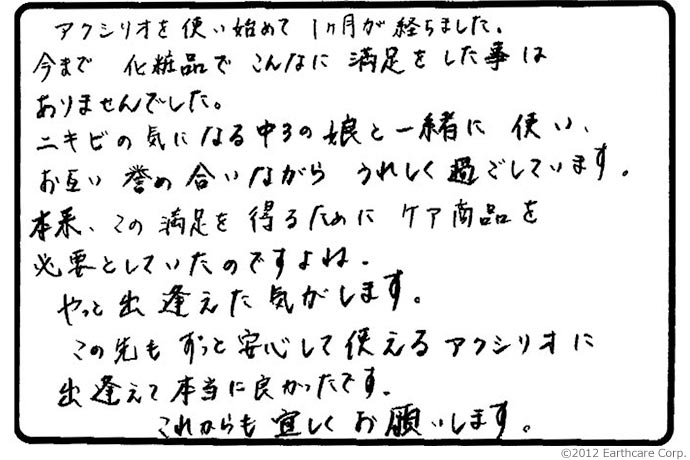 アクシリオを使い始めて1ヶ月が経ちました。
今まで 化粧品で こんなに 満足をした事は
ありませんでした。
ニキビの気になる中3の娘と一緒に 使い、
お互い 誉め合いながら うれしく過ごしています。
本来、この満足を得るために ケア商品を
必要としていたのですよね。
やっと出逢えた気がします。
この先も ずっと安心して使えるアクシリオに
出逢えて本当に良かったです。
これからも宜しくお願いします。
©2012 Earthcare Corp.